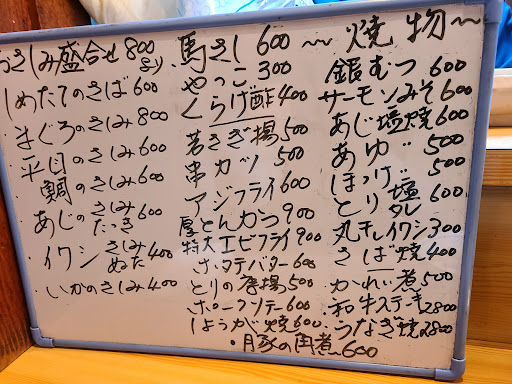 おさしみ盛合せ800より
しめたてのさば600
まぐろのさしみ800
平目のさしみ600
鯛のさしみ600
あじのさしみ たたき600
イワシさしみ ぬた400
いかのさしみ400
馬さし600
やっこ300
くらげ酢400
若さぎ揚500
串カツ500
アジフライ600
厚とんかつ900
特大エビフライ900
ホタテバター600
とりの唐揚500
ポークソテー600
しょうが焼600
・豚の角煮600
〜焼物〜
銀むつ600
サーモンみそ600
あじ塩焼600
あゆ〃500
ほっけ〃500
とり塩 タレ600
丸干しイワシ300
さば焼400
かれい煮500
和牛ステーキ2800
うなぎ焼2800